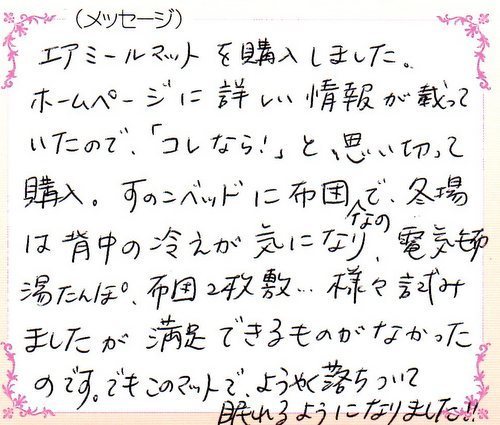 (メッセージ)
エアミールマット を購入しました。
ホームページに 詳しい 情報が 載って
いたので、「コレなら!」と 思い切って
購入。すのこベッドに布団で、冬場
は 背中の 冷えが 気になり、電気毛布
湯たんぽ、布団2枚敷… 様々試み
ましたが 満足 できるものがなかった
のです。でもこのマットで、ようやく落ちついて
眠れるようになりました!!